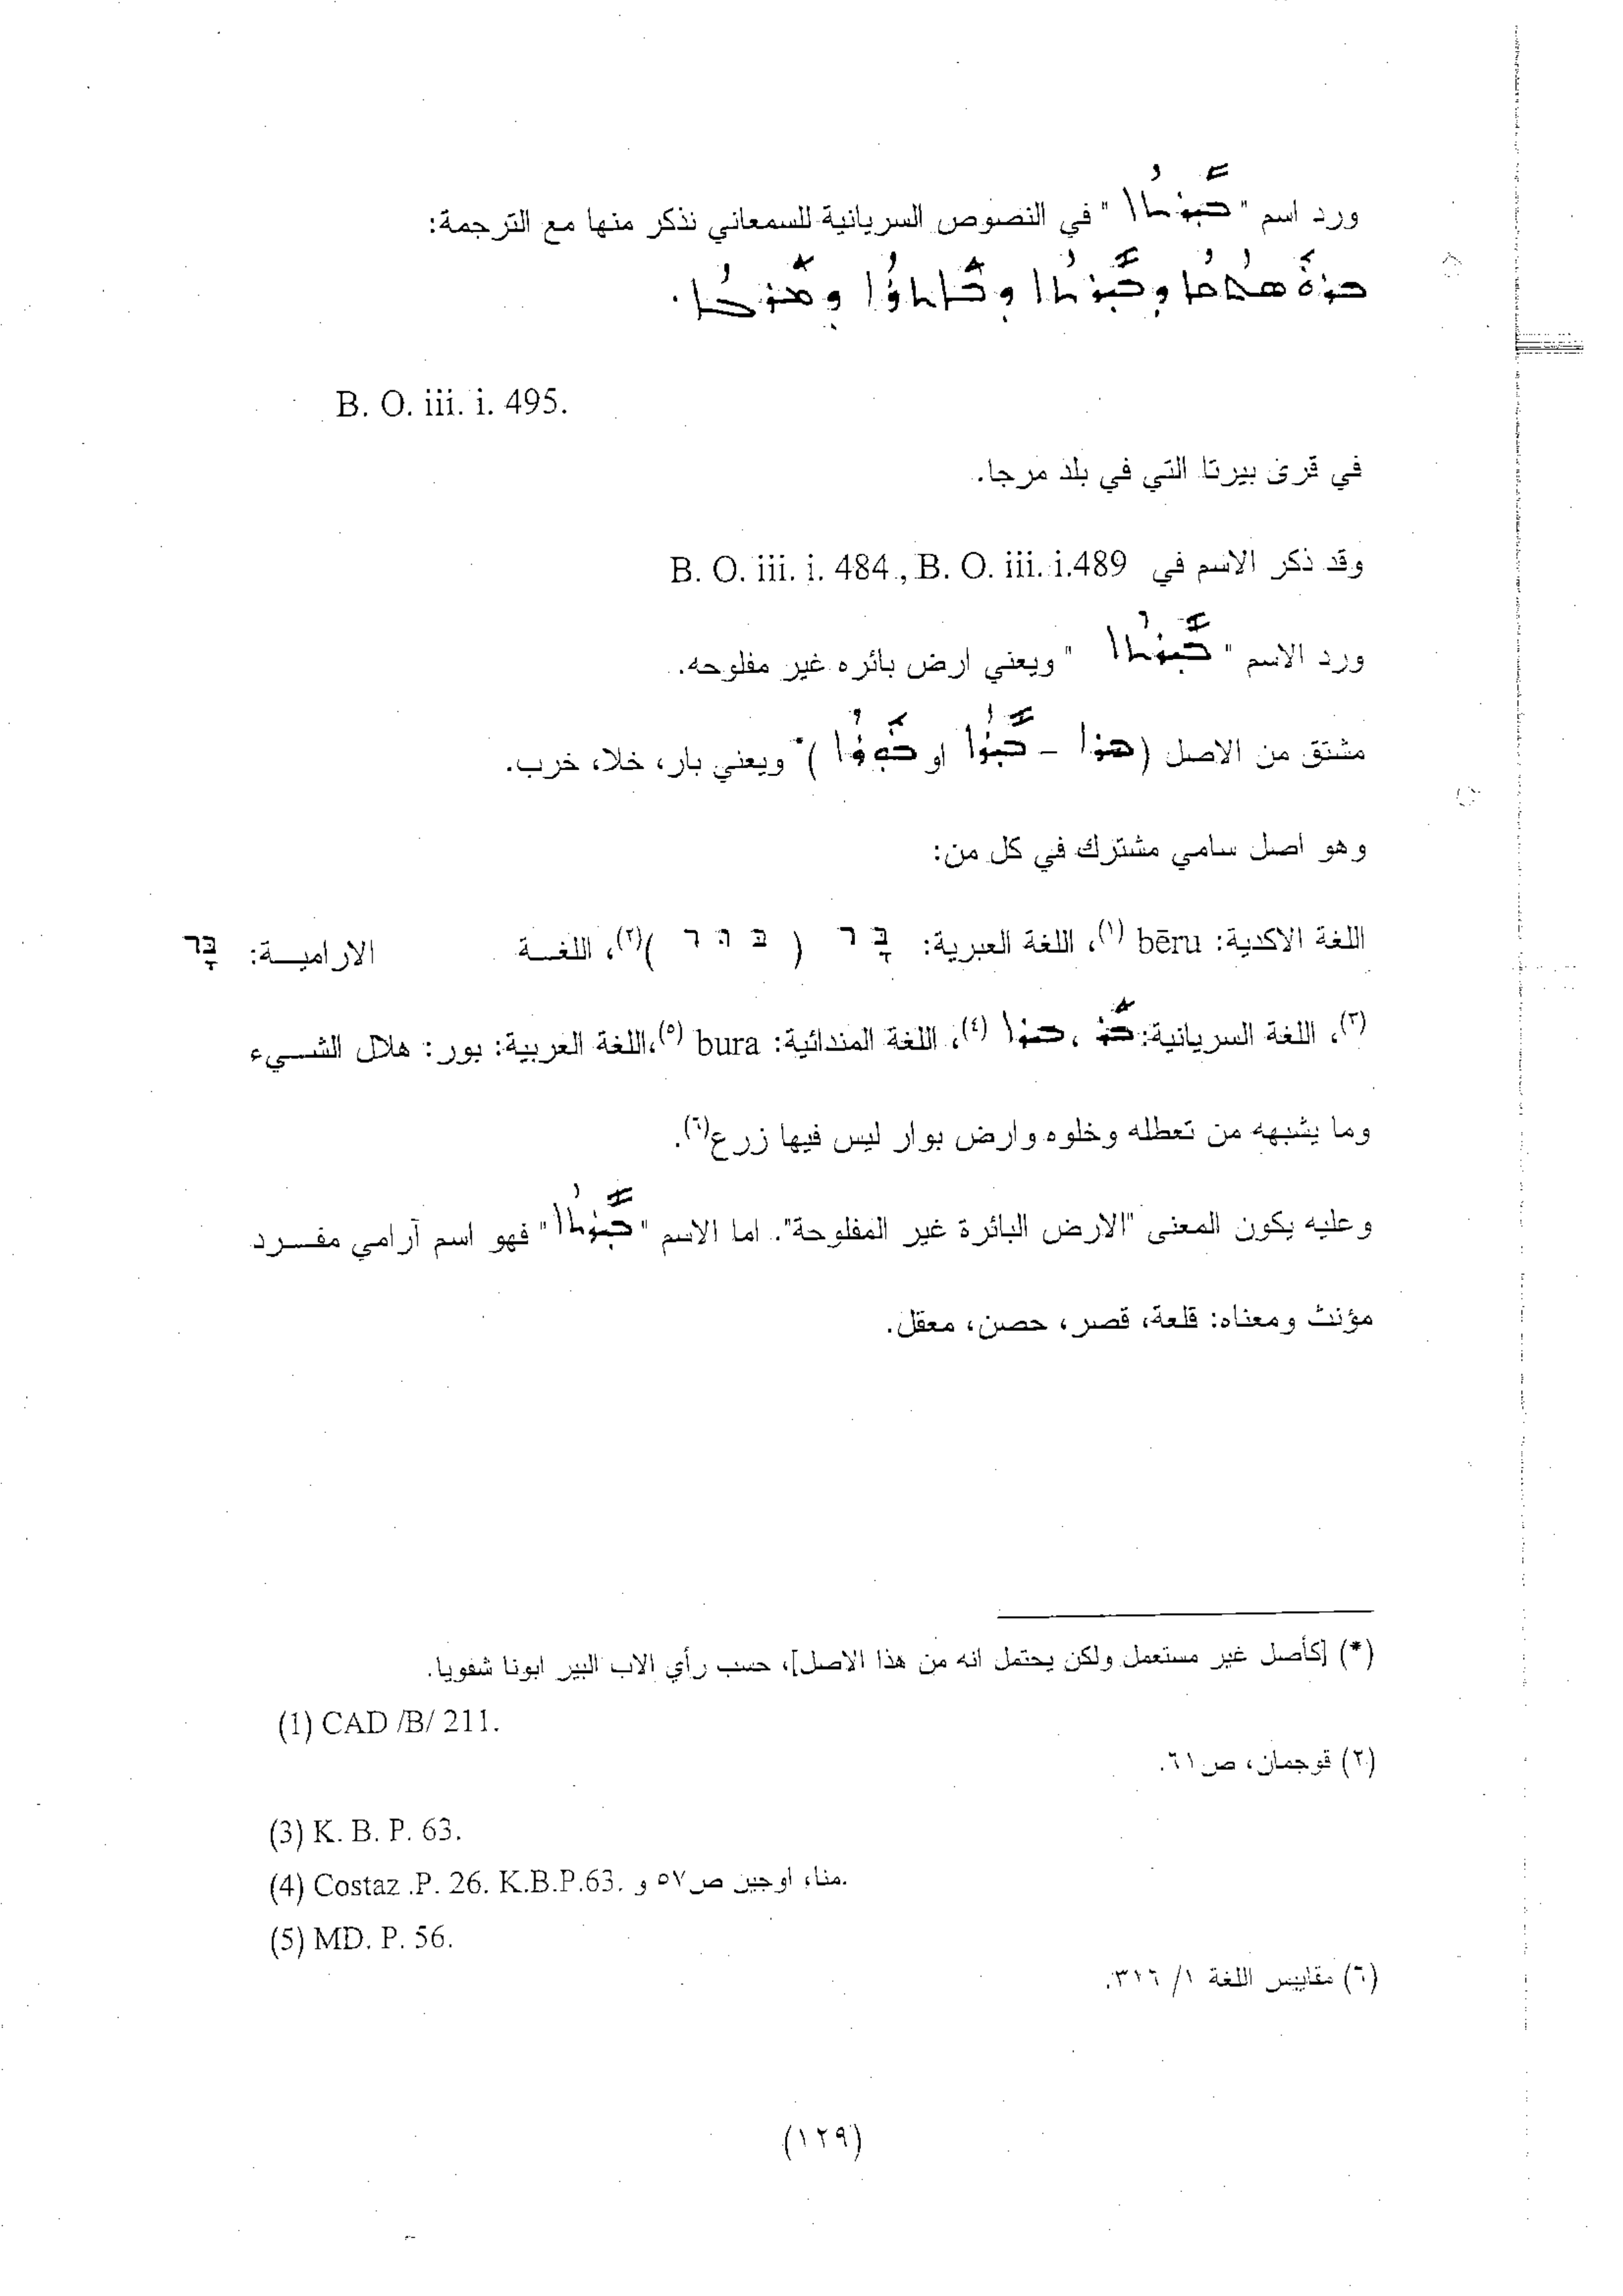 ورد اسم "ܒܝܪܬܐ" في النصوص السريانية للسمعاني نذكر منها مع الترجمة:
ܕܒܝܪܬܐ ܕܒܐܬܪܐ ܕܡܪܓܐ.
B. O. iii. i. 495.
في قرى بيرتا التي في بلد مرجا.
وقد ذكر الاسم في B. O. iii. i. 484., B. O. iii. i.489
ورد الاسم "ܒܝܪܬܐ" ويعني ارض بائره غير مفلوحه.
مشتق من الاصل ( - ܒܝܪܐ او ܒܘܪܐ )* ويعني بار، خلا، خرب.
وهو اصل سامي مشترك في كل من:
اللغة الاكدية: bēru (١)، اللغة العبرية: בָּר ( ב ה ר )(٢)، اللغــة الاراميــة: בָּר
(٣)، اللغة السريانية: ܒܪ ، ܒܪܐ (٤)، اللغة المندائية: bura (٥)،اللغة العربية: بور: هلاك الشــيء
وما يشبهه من تعطله وخلوه وارض بوار ليس فيها زرع(٦).
وعليه يكون المعنى "الارض البائرة غير المفلوحة". اما الاسم "ܒܝܪܬܐ" فهو اسم آرامي مفــرد
مؤنث ومعناه: قلعة، قصر، حصن، معقل.
(*) [كأصل غير مستعمل ولكن يحتمل انه من هذا الاصل]، حسب رأي الاب البير ابونا شفويا.
(1) CAD /B/ 211.
(٢) قوجمان، ص٦١.
(3) K. B. P. 63.
(4) Costaz .P. 26. K.B.P.63. منا، اوجين ص٥٧ و.
(5) MD. P. 56.
(٦) مقاييس اللغة ١/ ٣١٦.
(١٢٩)